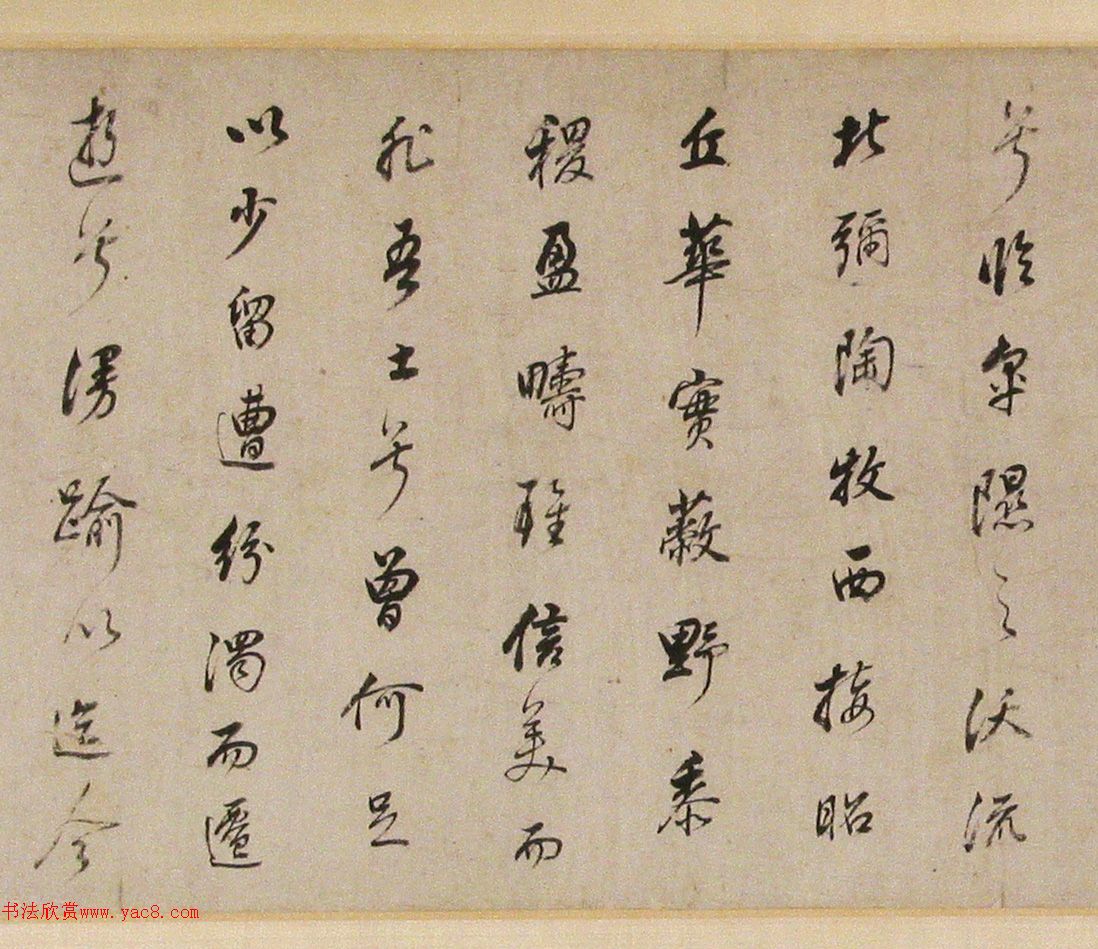 兮臨皋隰之沃流
北彌陶牧西接昭
丘華實蔽野黍
稷盈疇雖信美而
非吾土兮曾何足
以少留遭紛濁而遷
逝兮漫踰以迄今
书法欣赏www.yac8.com